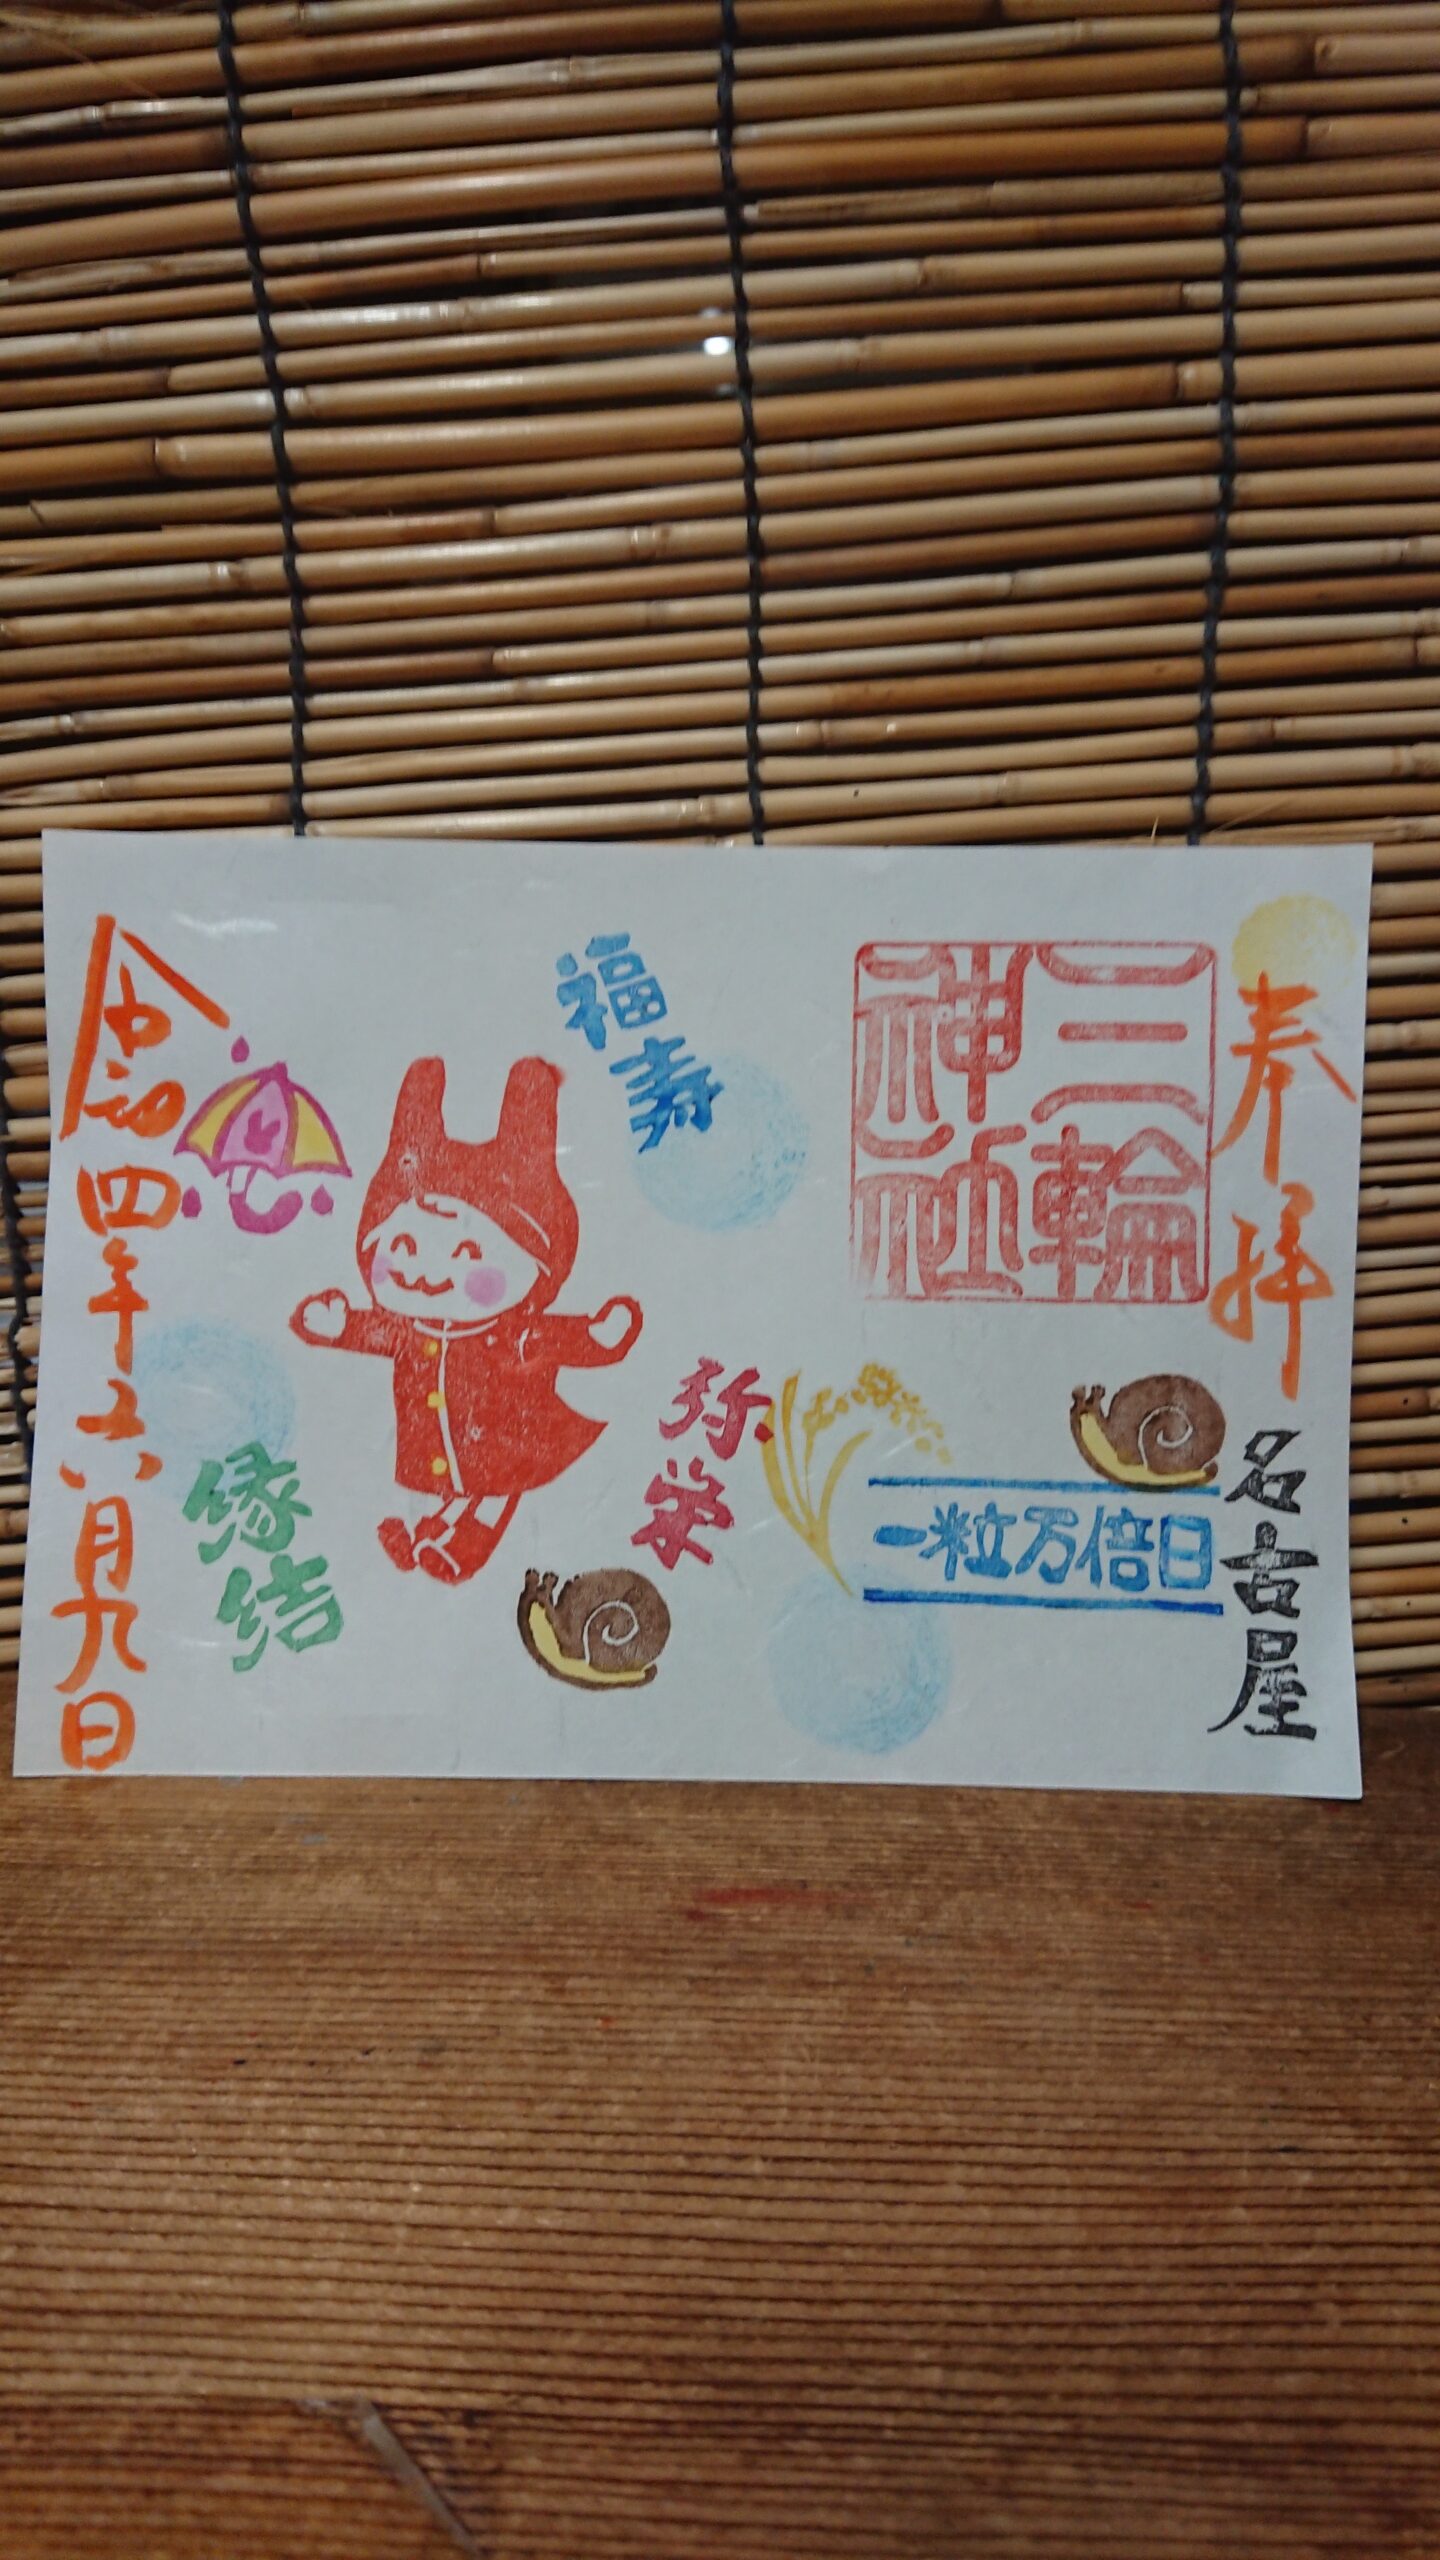 奉拝
三輪
神社
名古屋
一粒万倍日
福寿
弥栄
縁結
令和四年六月九日